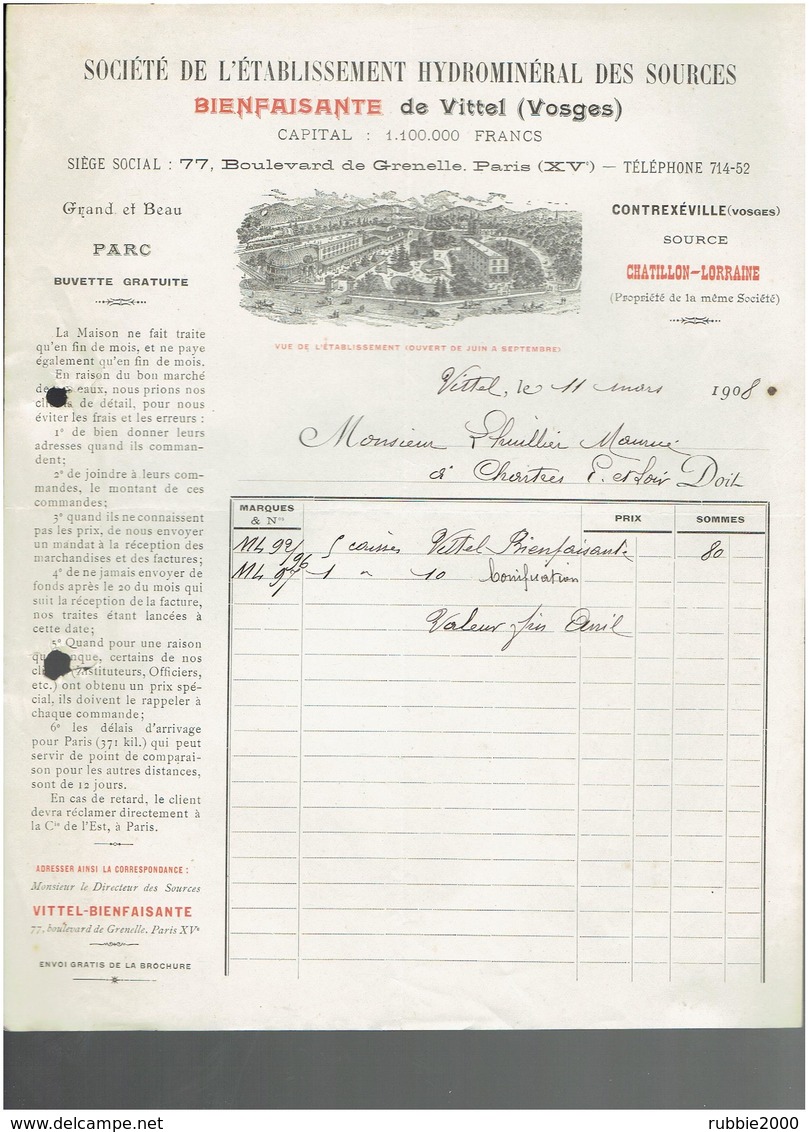 SOCIÉTÉ DE L'ÉTABLISSEMENT HYDROMINÉRAL DES SOURCES
BIENFAISANTE de Vittel (Vosges)
CAPITAL : 1.100.000 FRANCS
SIÈGE SOCIAL : 77, Boulevard de Grenelle, Paris (XVe) — TÉLÉPHONE 714-52
Grand et Beau
PARC
BUVETTE GRATUITE
CONTREXÉVILLE (VOSGES)
SOURCE
CHATILLON-LORRAINE
(Propriété de la même Société)
VUE DE L'ÉTABLISSEMENT (OUVERT DE JUIN A SEPTEMBRE)
La Maison ne fait traite
qu'en fin de mois, et ne paye
également qu'en fin de mois.
En raison du bon marché
de eaux, nous prions nos
de détail, pour nous
éviter les frais et les erreurs :
1° de bien donner leurs
adresses quand ils comman-
dent;
2° de joindre à leurs com-
mandes, le montant de ces
commandes;
3° quand ils ne connaissent
pas les prix, de nous envoyer
un mandat à la réception des
marchandises et des factures;
4° de ne jamais envoyer de
fonds après le 20 du mois qui
suit la réception de la facture,
nos traites étant lancées à
cette date;
5° Quand pour une raison
certains de nos
(Instituteurs, Officiers,
etc.) ont obtenu un prix spé-
cial, ils doivent le rappeler à
chaque commande;
6° les délais d'arrivage
pour Paris (371 kil.) qui peut
servir de point de comparai-
son pour les autres distances,
sont de 12 jours.
En cas de retard, le client
devra réclamer directement à
la Cie de l'Est, à Paris.
ADRESSER AINSI LA CORRESPONDANCE :
Monsieur le Directeur des Sources
VITTEL-BIENFAISANTE
77, boulevard de Grenelle, Paris XVe
ENVOI GRATIS DE LA BROCHURE
Vittel, le 11 mars 1908
Monsieur Lhuillier Maurice
à Chartres E. et Loir Doit
MARQUES & Nos PRIX SOMMES
ML 92/96 5 caisses Vittel Bienfaisante 80
ML 97 1 " 10 bonification
Valeur fin Avril
rubbie2000
delcampe.net